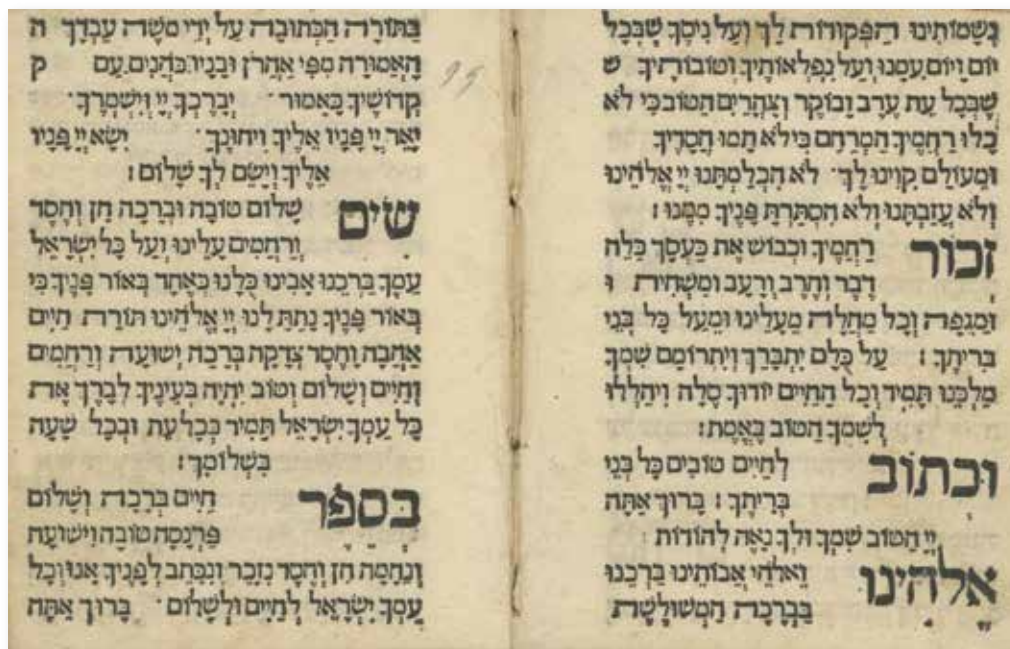 נִשְׁמוֹתֵינוּ הַפְּקוּדוֹת לָךְ וְעַל נִיסֶּךָ שֶׁבְּכָל
יוֹם וָיוֹם עִמָּנוּ וְעַל נִפְלְאוֹתֶיךָ וְטוֹבוֹתֶיךָ ש
שֶׁבְּכָל עֵת עֶרֶב וָבוֹקֶר וְצָהֳרַיִם הַטּוֹב כִּי לֹא
כָלוּ רַחֲמֶיךָ הַמְרַחֵם כִּי לֹא תַמּוּ חֲסָדֶיךָ
וּמֵעוֹלָם קִוִּינוּ לָךְ לֹא הִכְלַמְתָּנוּ יְיָ אֱלֹהֵינוּ
וְלֹא עֲזַבְתָּנוּ וְלֹא הִסְתַּרְתָּ פָּנֶיךָ מִמֶּנּוּ :
זְכוֹר רַחֲמֶיךָ וּכְבוֹשׁ אֶת כַּעַסְךָ כַּלֵּה
דֶבֶר וְחֶרֶב וְרָעָב וּמַשְׁחִית ו
וּמַגֵּפָה וְכָל מַחֲלָה מֵעָלֵינוּ וּמֵעַל כָּל בְּנֵי
בְּרִיתֶךָ : עַל כֻּלָּם יִתְבָּרַךְ וְיִתְרוֹמַם שִׁמְךָ
מַלְכֵּנוּ תָּמִיד וְכָל הַחַיִּים יוֹדוּךָ סֶלָה וִיהַלְלוּ
לְשִׁמְךָ הַטּוֹב בֶּאֱמֶת :
וּכְתוֹב לְחַיִּים טוֹבִים כָּל בְּנֵי
בְּרִיתֶךָ : בָּרוּךְ אַתָּה
יְיָ הַטּוֹב שִׁמְךָ וּלְךָ נָאֶה לְהוֹדוֹת :
אֱלֹהֵינוּ וֵאלֹהֵי אֲבוֹתֵינוּ בָּרְכֵנוּ
בַּבְּרָכָה הַמְשׁוּלֶּשֶׁת
בַּתּוֹרָה הַכְּתוּבָה עַל יְדֵי מֹשֶׁה עַבְדֶּךָ ה
הָאֲמוּרָה מִפִּי אַהֲרֹן וּבָנָיו כֹּהֲנִים עַם ק
קְדוֹשֶׁיךָ כָּאָמוּר יְבָרֶכְךָ יְיָ וְיִשְׁמְרֶךָ
יָאֵר יְיָ פָּנָיו אֵלֶיךָ וִיחוּנֶּךָּ יִשָּׂא יְיָ פָּנָיו
אֵלֶיךָ וְיָשֵׂם לְךָ שָׁלוֹם :
שִׂים שָׁלוֹם טוֹבָה וּבְרָכָה חֵן וָחֶסֶד
וְרַחֲמִים עָלֵינוּ וְעַל כָּל יִשְׂרָאֵל
עַמֶּךָ בָּרְכֵנוּ אָבִינוּ כֻּלָּנוּ כְּאֶחָד בְּאוֹר פָּנֶיךָ כִּי
בְאוֹר פָּנֶיךָ נָתַתָּ לָּנוּ יְיָ אֱלֹהֵינוּ תּוֹרַת חַיִּים
אַהֲבָה וָחֶסֶד צְדָקָה בְּרָכָה יְשׁוּעָה וְרַחֲמִים
וְחַיִּים וְשָׁלוֹם וְטוֹב יִהְיֶה בְּעֵינֶיךָ לְבָרֵךְ אֶת
כָּל עַמְּךָ יִשְׂרָאֵל תָּמִיד בְּכָל עֵת וּבְכָל שָׁעָה
בִּשְׁלוֹמֶךָ :
בְּסֵפֶר חַיִּים בְּרָכָה וְשָׁלוֹם
פַּרְנָסָה טוֹבָה וִישׁוּעָה
וְנֶחָמָה חֵן וָחֶסֶד נִזָּכֵר וְנִכָּתֵב לְפָנֶיךָ אָנוּ וְכָל
עַמְּךָ יִשְׂרָאֵל לְחַיִּים וּלְשָׁלוֹם בָּרוּךְ אַתָּה